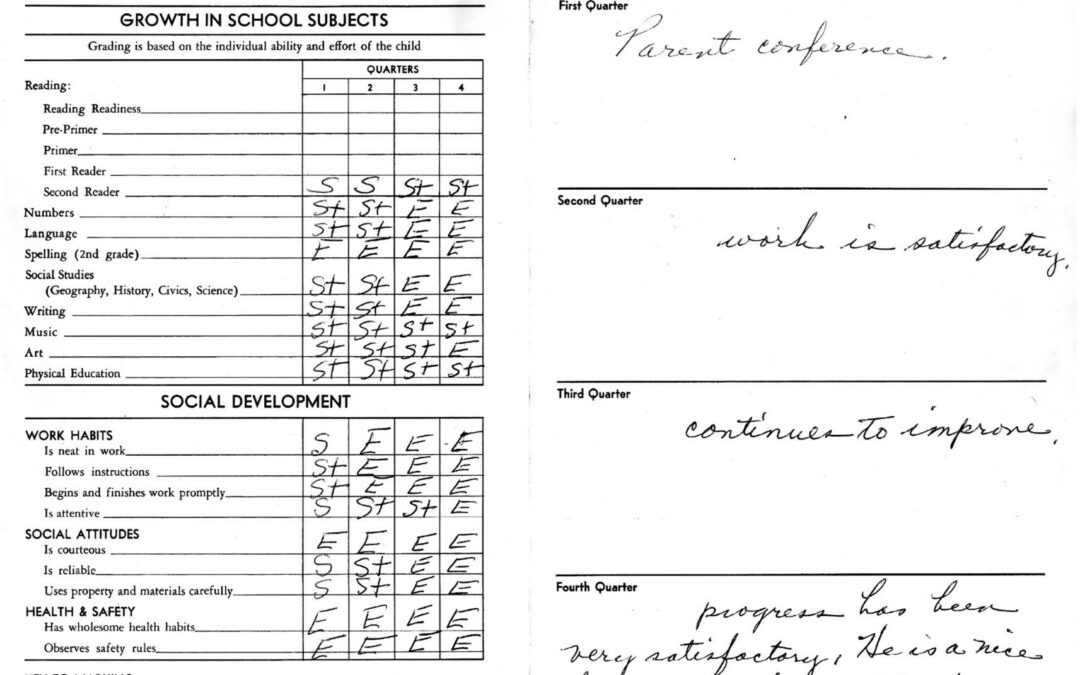 GROWTH IN SCHOOL SUBJECTS
Grading is based on the individual ability and effort of the child
QUARTERS
Reading: 1 2 3 4
Reading Readiness
Pre-Primer
Primer
First Reader
Second Reader S S S+ S+
Numbers S+ S+ E E
Language S+ S+ E E
Spelling (2nd grade) E E E E
Social Studies
(Geography, History, Civics, Science) S+ S+ E E
Writing S+ S+ E E
Music S+ S+ S+ S+
Art S+ S+ S+ E
Physical Education S+ S+ S+ S+
SOCIAL DEVELOPMENT
WORK HABITS
Is neat in work S E E E
Follows instructions S+ E E E
Begins and finishes work promptly S+ E E E
Is attentive S S+ S+ E
SOCIAL ATTITUDES
Is courteous E E E E
Is reliable S S+ E E
Uses property and materials carefully S S+ E E
HEALTH & SAFETY
Has wholesome health habits E E E E
Observes safety rules E E E E
First Quarter
Parent conference.
Second Quarter
work is satisfactory.
Third Quarter
continues to improve.
Fourth Quarter
progress has been
very satisfactory, He is a nice